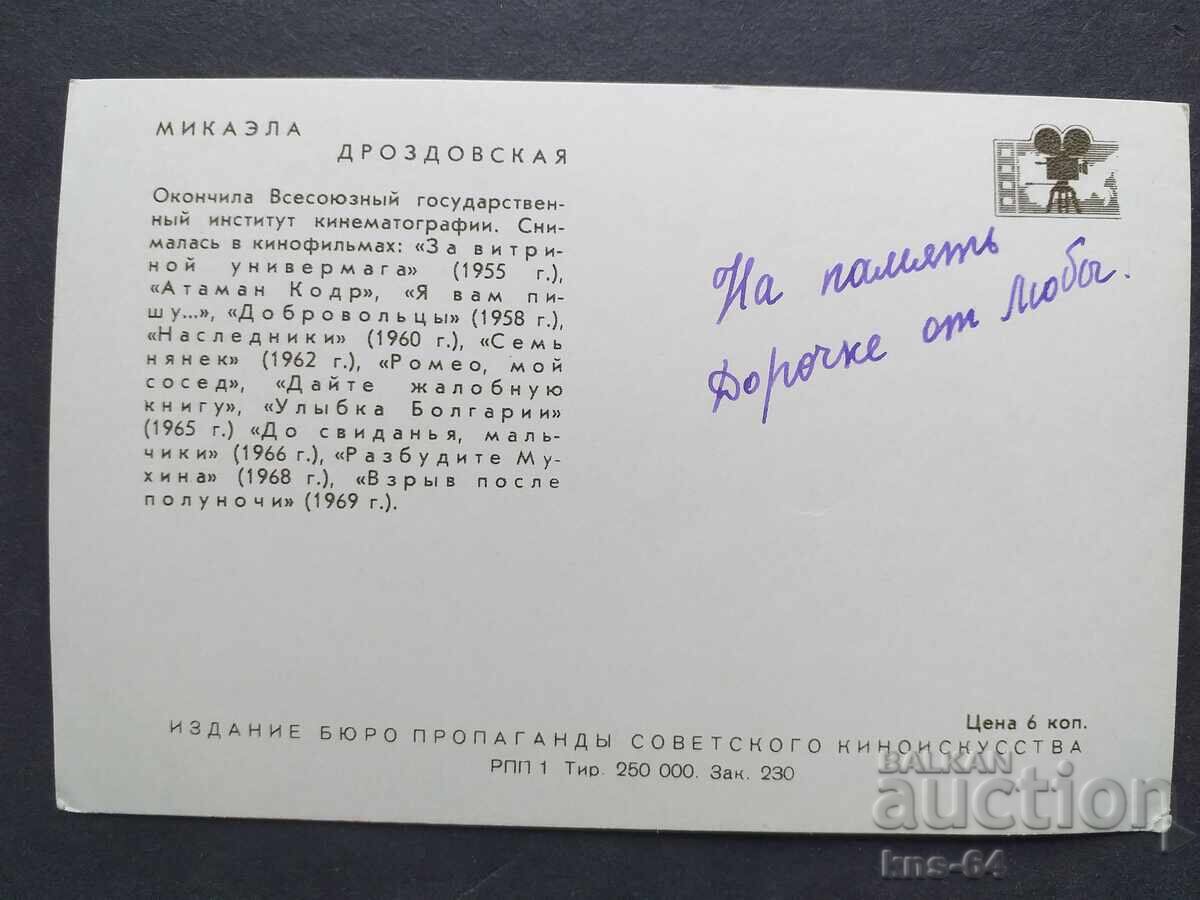 МИКАЭЛА
ДРОЗДОВСКАЯ
Окончила Всесоюзный государствен-
ный институт кинематографии. Сни-
малась в кинофильмах: «За витри-
ной универмага» (1955 г.),
«Атаман Кодр», «Я вам пи-
шу...», «Добровольцы» (1958 г.),
«Наследники» (1960 г.), «Семь
нянек» (1962 г.), «Ромео, мой
сосед», «Дайте жалобную
книгу», «Улыбка Болгарии»
(1965 г.) «До свиданья, маль-
чики» (1966 г.), «Разбудите Му-
хина» (1968 г.), «Взрыв после
полуночи» (1969 г.).
На память
Дорочке от Любы.
Цена 6 коп.
ИЗДАНИЕ БЮРО ПРОПАГАНДЫ СОВЕТСКОГО КИНОИСКУССТВА
РПП 1 Тир. 250 000. Зак. 230
BALKAN
auction
kns-64